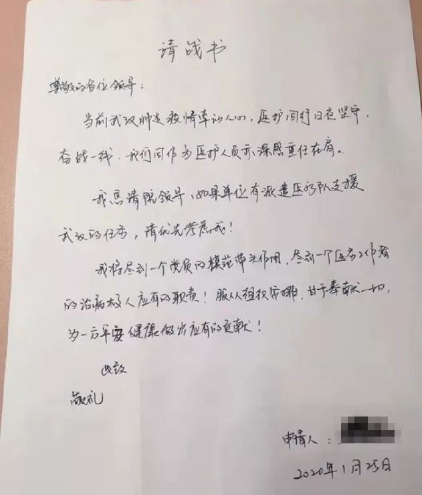 请战书
尊敬的各位领导:
当前武汉肺炎疫情牵动人心,医护同行日夜坚守,
奋战一线,我们同作为医护人员亦深感重任在肩。
我恳请院领导,如果单位有派遣医疗队支援
武汉的任务,请优先考虑我!
我将尽到一个党员的模范带头作用,尽到一个医务工作者
的治病救人应有的职责!服从组织安排,甘于奉献一切,
为一方平安健康做出应有的贡献!
此致
敬礼
申请人:
2020年1月25日